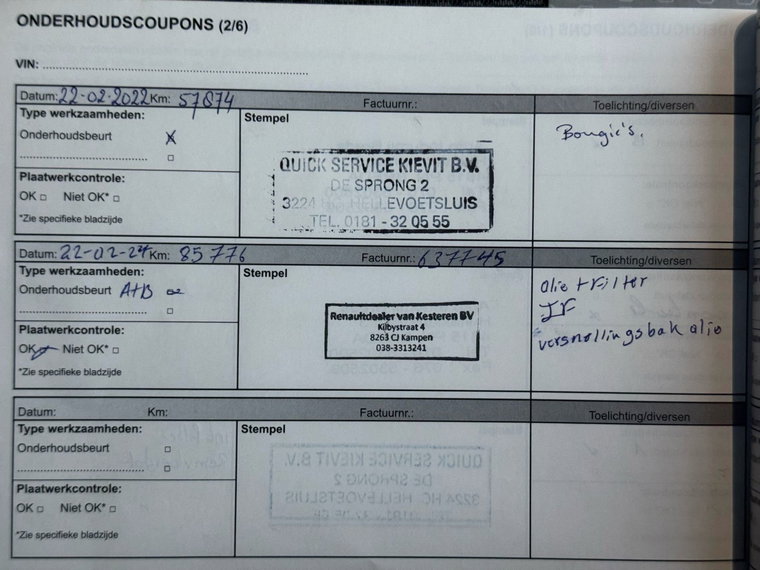 ONDERHOUDSCOUPONS (2/6)
VIN: ........................................................................
Datum: 22-02-2022 Km: 57874 Factuurnr.: Toelichting/diversen
Type werkzaamheden:
Stempel
Bougie's.
Onderhoudsbeurt X
.................................... □
QUICK SERVICE KIEVIT B.V.
DE SPRONG 2
3224 HELLEVOETSLUIS
TEL. 0181 - 32 05 55
Plaatwerkcontrole:
OK □ Niet OK* □
*Zie specifieke bladzijde
Datum: 22-02-24 Km: 85776 Factuurnr.: 637745 Toelichting/diversen
Type werkzaamheden:
Stempel
olie + Filter
Onderhoudsbeurt A+B
IF
.................................... □
versnellingsbak olie
Renaultdealer van Kesteren BV
Kilbystraat 4
8263 CJ Kampen
038-3313241
Plaatwerkcontrole:
OK Niet OK* □
*Zie specifieke bladzijde
Datum: Km: Factuurnr.: Toelichting/diversen
Type werkzaamheden:
Stempel
Onderhoudsbeurt □
.................................... □
Plaatwerkcontrole:
OK □ Niet OK* □
*Zie specifieke bladzijde